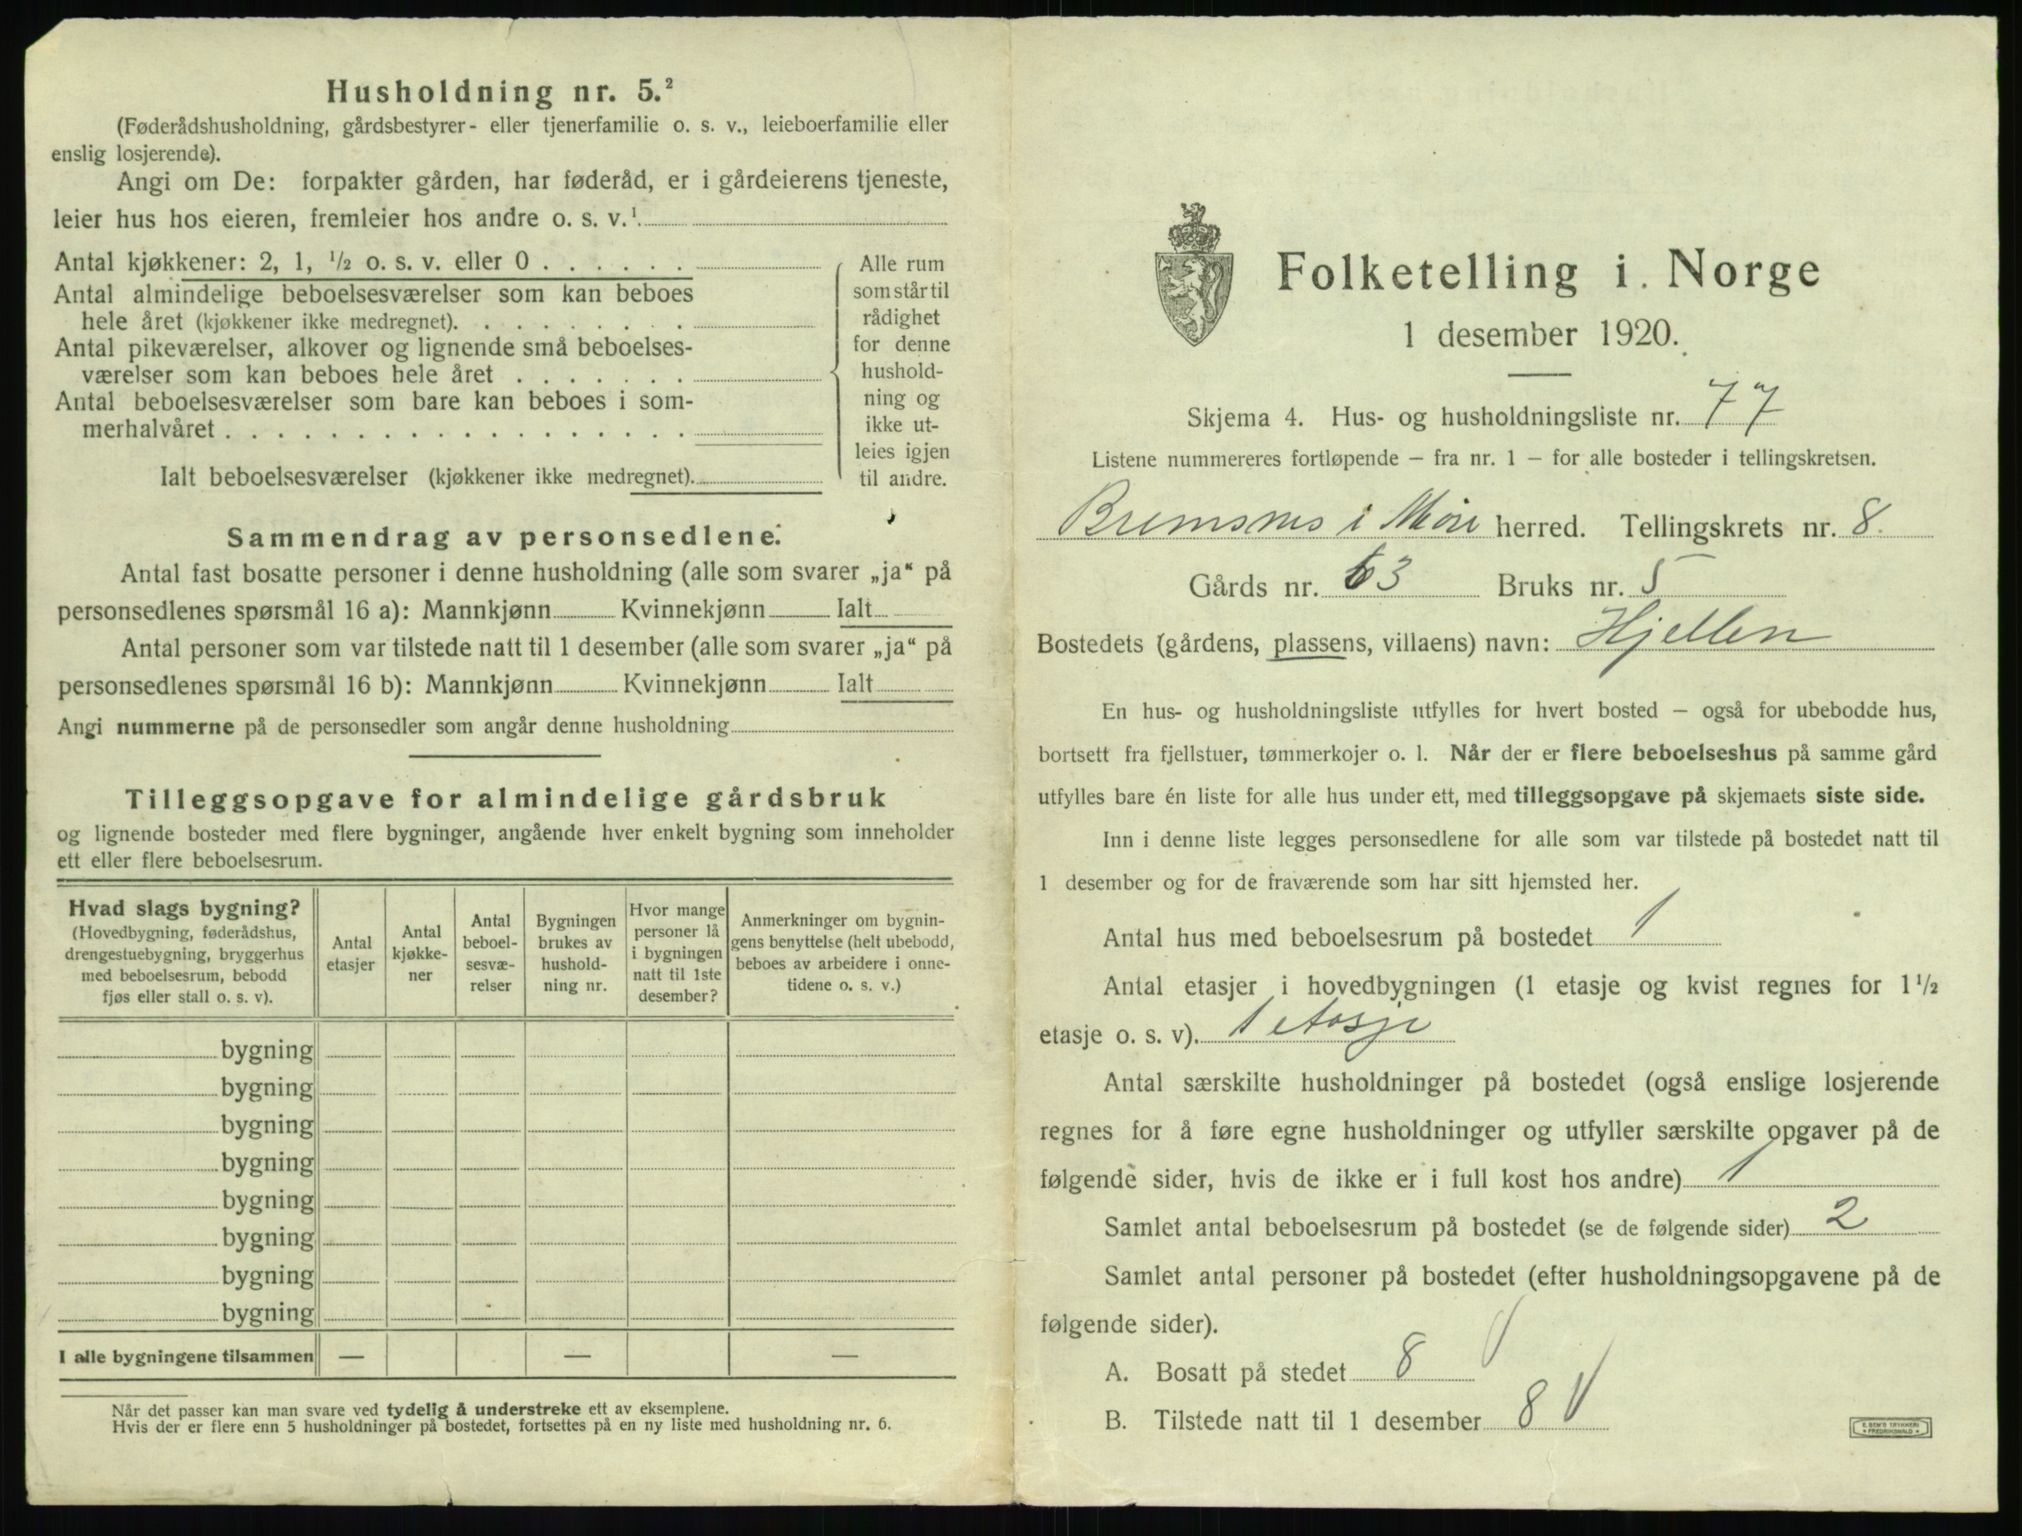 Husholdning nr. 5.²
(Føderådshusholdning, gårdsbestyrer- eller tjenerfamilie o. s. v., leieboerfamilie eller
enslig losjerende).
Angi om De: forpakter gården, har føderåd, er i gårdeierens tjeneste,
leier hus hos eieren, fremleier hos andre o. s. v.¹
Antal kjøkkener: 2, 1, ½ o. s. v. eller 0
Antal almindelige beboelsesværelser som kan beboes
hele året (kjøkkener ikke medregnet)
Antal pikeværelser, alkover og lignende små beboelses-
værelser som kan beboes hele året
Antal beboelsesværelser som bare kan beboes i som-
merhalvåret
Ialt beboelsesværelser (kjøkkener ikke medregnet)
Alle rum
som står til
rådighet
for denne
hushold-
ning og
ikke ut-
leies igjen
til andre.
Sammendrag av personsedlene.
Antal fast bosatte personer i denne husholdning (alle som svarer „ja“ på
personsedlenes spørsmål 16 a): Mannkjønn Kvinnekjønn Ialt
Antal personer som var tilstede natt til 1 desember (alle som svarer „ja“ på
personsedlenes spørsmål 16 b): Mannkjønn Kvinnekjønn Ialt
Angi nummerne på de personsedler som angår denne husholdning
Tilleggsopgave for almindelige gårdsbruk
og lignende bosteder med flere bygninger, angående hver enkelt bygning som inneholder
ett eller flere beboelsesrum.
Hvad slags bygning?
(Hovedbygning, føderådshus,
drengestuebygning, bryggerhus
med beboelsesrum, bebodd
fjøs eller stall o. s. v).
Antal
etasjer
Antal
kjøkke-
ner
Antal
beboel-
sesvæ-
relser
Bygningen
brukes av
hushold-
ning nr.
Hvor mange
personer lå
i bygningen
natt til 1ste
desember?
Anmerkninger om bygnin-
gens benyttelse (helt ubebodd,
beboes av arbeidere i onne-
tidene o. s. v.)
bygning
bygning
bygning
bygning
bygning
bygning
bygning
bygning
I alle bygningene tilsammen — — —
Når det passer kan man svare ved tydelig å understreke ett av eksemplene.
Hvis der er flere enn 5 husholdninger på bostedet, fortsettes på en ny liste med husholdning nr. 6.
Folketelling i Norge
1 desember 1920.
Skjema 4. Hus- og husholdningsliste nr. 77
Listene nummereres fortløpende – fra nr. 1 – for alle bosteder i tellingskretsen.
Bremsnes i Møre herred. Tellingskrets nr. 8.
Gårds nr. 63 Bruks nr. 5
Bostedets (gårdens, plassens, villaens) navn: Hjellen
En hus- og husholdningsliste utfylles for hvert bosted – også for ubebodde hus,
bortsett fra fjellstuer, tømmerkojer o. l. Når der er flere beboelseshus på samme gård
utfylles bare én liste for alle hus under ett, med tilleggsopgave på skjemaets siste side.
Inn i denne liste legges personsedlene for alle som var tilstede på bostedet natt til
1 desember og for de fraværende som har sitt hjemsted her.
Antal hus med beboelsesrum på bostedet 1
Antal etasjer i hovedbygningen (1 etasje og kvist regnes for 1½
etasje o. s. v). 1 etasje
Antal særskilte husholdninger på bostedet (også enslige losjerende
regnes for å føre egne husholdninger og utfyller særskilte opgaver på de
følgende sider, hvis de ikke er i full kost hos andre) 1
Samlet antal beboelsesrum på bostedet (se de følgende sider) 2
Samlet antal personer på bostedet (efter husholdningsopgavene på de
følgende sider).
A. Bosatt på stedet 8
B. Tilstede natt til 1 desember 8
E. SEM'S TRYKKERI
FREDRIKSHALD